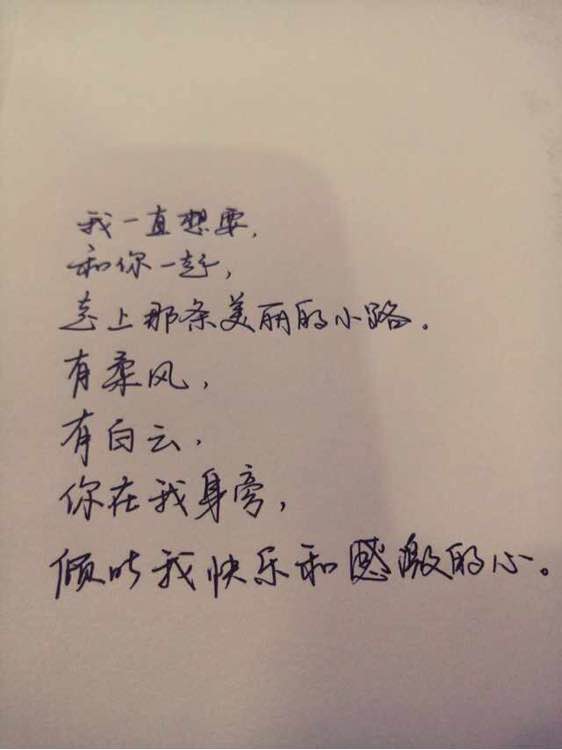 我一直想要，
和你一起，
走上那条美丽的小路。
有柔风，
有白云，
你在我身旁，
倾听我快乐和感激的心。